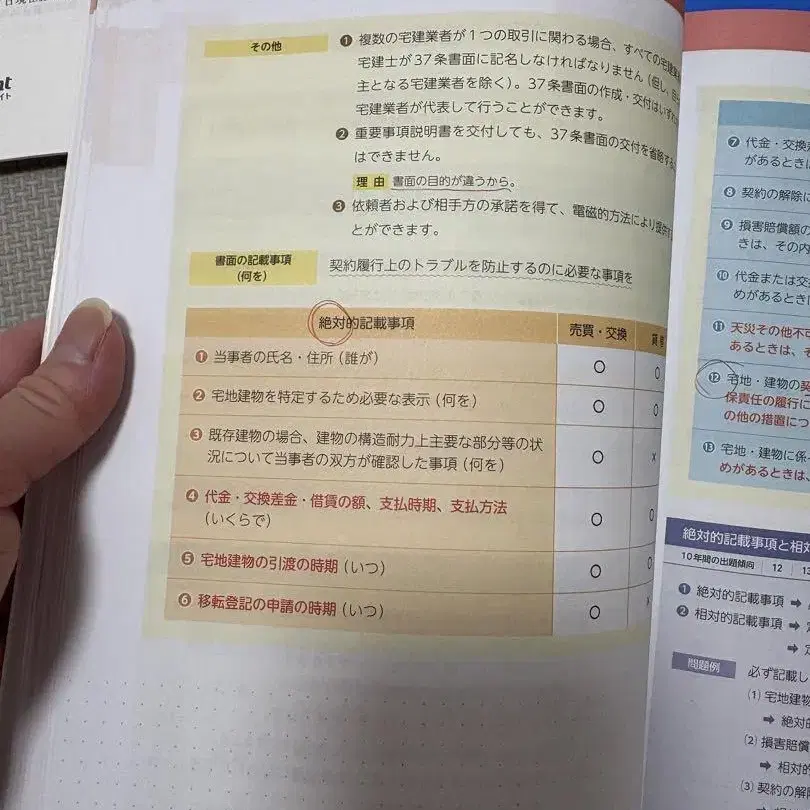 その他
❶ 複数の宅建業者が1つの取引に関わる場合、すべての宅建業
宅建士が37条書面に記名しなければなりません（但し、自
主となる宅建業者を除く）。37条書面の作成・交付はいずれ
宅建業者が代表して行うことができます。
❷ 重要事項説明書を交付しても、37条書面の交付を省略する
はできません。
理由 書面の目的が違うから。
❸ 依頼者および相手方の承諾を得て、電磁的方法により提供す
とができます。
書面の記載事項
（何を）
契約履行上のトラブルを防止するのに必要な事項を
絶対的記載事項 売買・交換 貸
❶ 当事者の氏名・住所（誰が） ○ ○
❷ 宅地建物を特定するため必要な表示（何を） ○ ○
❸ 既存建物の場合、建物の構造耐力上主要な部分等の状
況について当事者の双方が確認した事項（何を） ○ ×
❹ 代金・交換差金・借賃の額、支払時期、支払方法
（いくらで） ○ ○
❺ 宅地建物の引渡の時期（いつ） ○ ○
❻ 移転登記の申請の時期（いつ） ○ ×
❼ 代金・交換差
があるときは
❽ 契約の解除に
❾ 損害賠償額の
きは、その内
❿ 代金または交
めがあるときに
⓫ 天災その他不可
あるときは、そ
⓬ 宅地・建物の契
保責任の履行に
の他の措置につ
⓭ 宅地・建物に係
めがあるときは、
絶対的記載事項と相対
10年間の出題傾向 12 13
❶ 絶対的記載事項 ➡
❷ 相対的記載事項 ➡ 定
➡ 定
問題例 必ず記載し
(1) 宅地建物
➡ 絶対的
(2) 損害賠償
➡ 相対的
(3) 契約の解